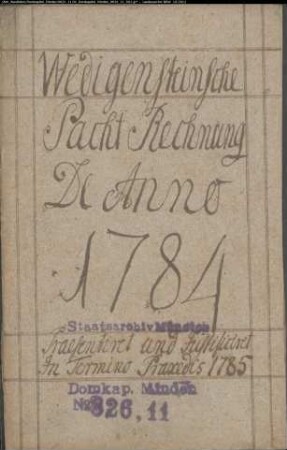 Wedigensteinsche
Pacht Rechnung
De Anno
1784
Staatsarchiv Münster
Praesentiret und Justificiret
In Termino Praxedis 1785
Domkap. Minden
Nr. 326,11